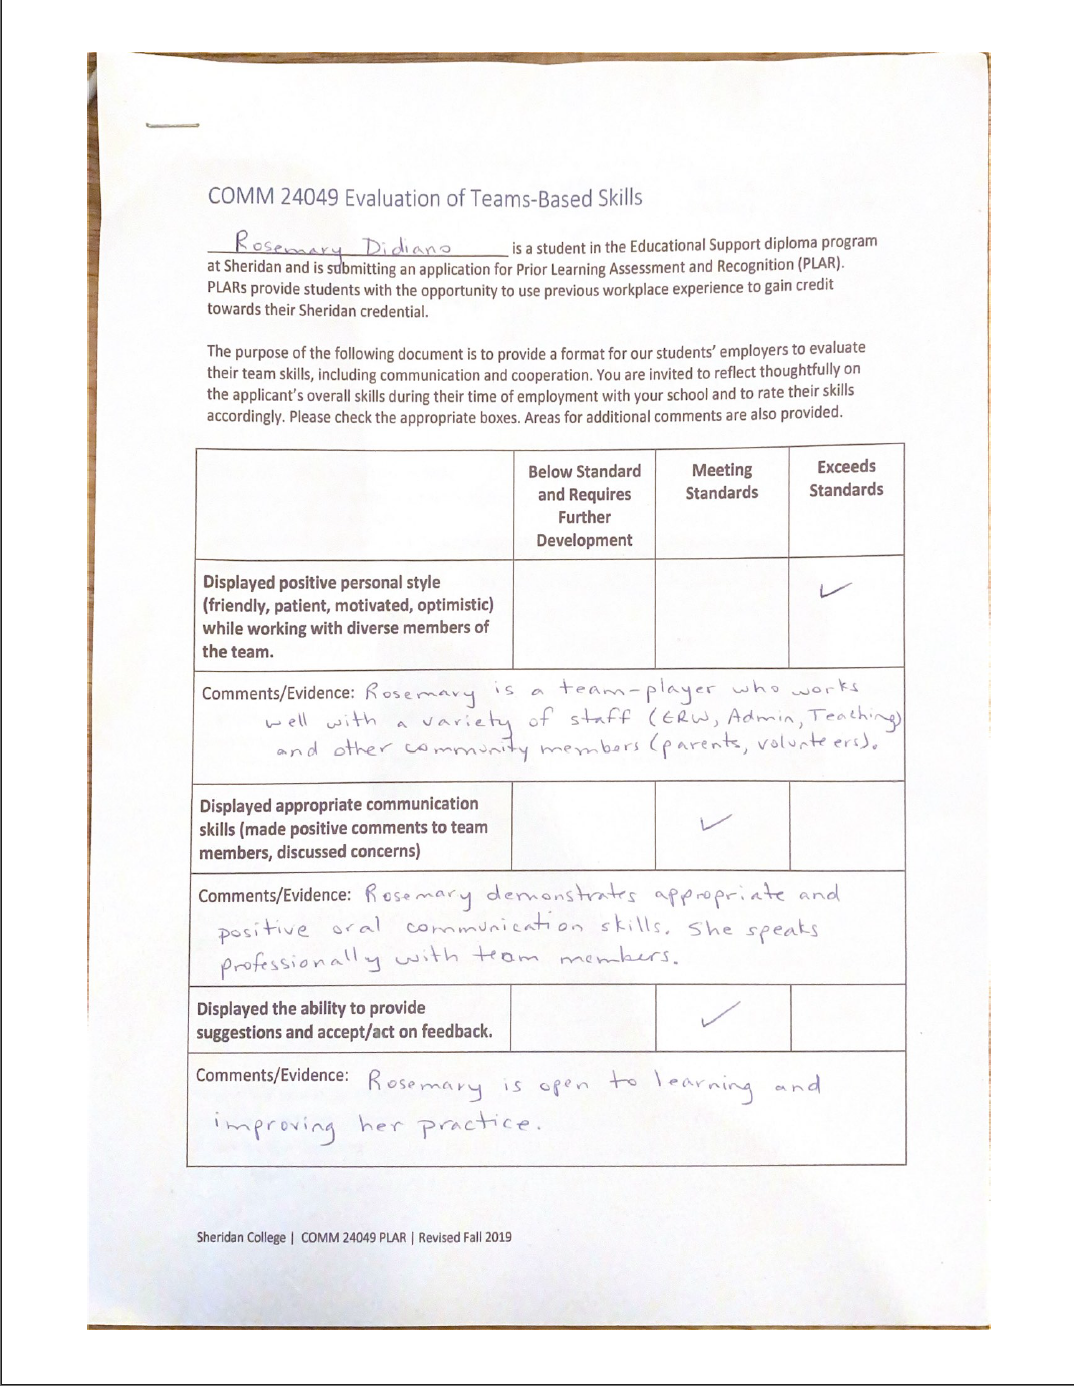 COMM 24049 Evaluation of Teams-Based Skills
Rosemary Didiano is a student in the Educational Support diploma program
at Sheridan and is submitting an application for Prior Learning Assessment and Recognition (PLAR).
PLARs provide students with the opportunity to use previous workplace experience to gain credit
towards their Sheridan credential.
The purpose of the following document is to provide a format for our students' employers to evaluate
their team skills, including communication and cooperation. You are invited to reflect thoughtfully on
the applicant's overall skills during their time of employment with your school and to rate their skills
accordingly. Please check the appropriate boxes. Areas for additional comments are also provided.
Below Standard
and Requires
Further
Development
Meeting
Standards
Exceeds
Standards
Displayed positive personal style
(friendly, patient, motivated, optimistic)
while working with diverse members of
the team.
Comments/Evidence: Rosemary is a team-player who works
well with a variety of staff (ERW, Admin, Teaching)
and other community members (parents, volunteers).
Displayed appropriate communication
skills (made positive comments to team
members, discussed concerns)
Comments/Evidence: Rosemary demonstrates appropriate and
positive oral communication skills. She speaks
professionally with team members.
Displayed the ability to provide
suggestions and accept/act on feedback.
Comments/Evidence: Rosemary is open to learning and
improving her practice.
Sheridan College | COMM 24049 PLAR | Revised Fall 2019